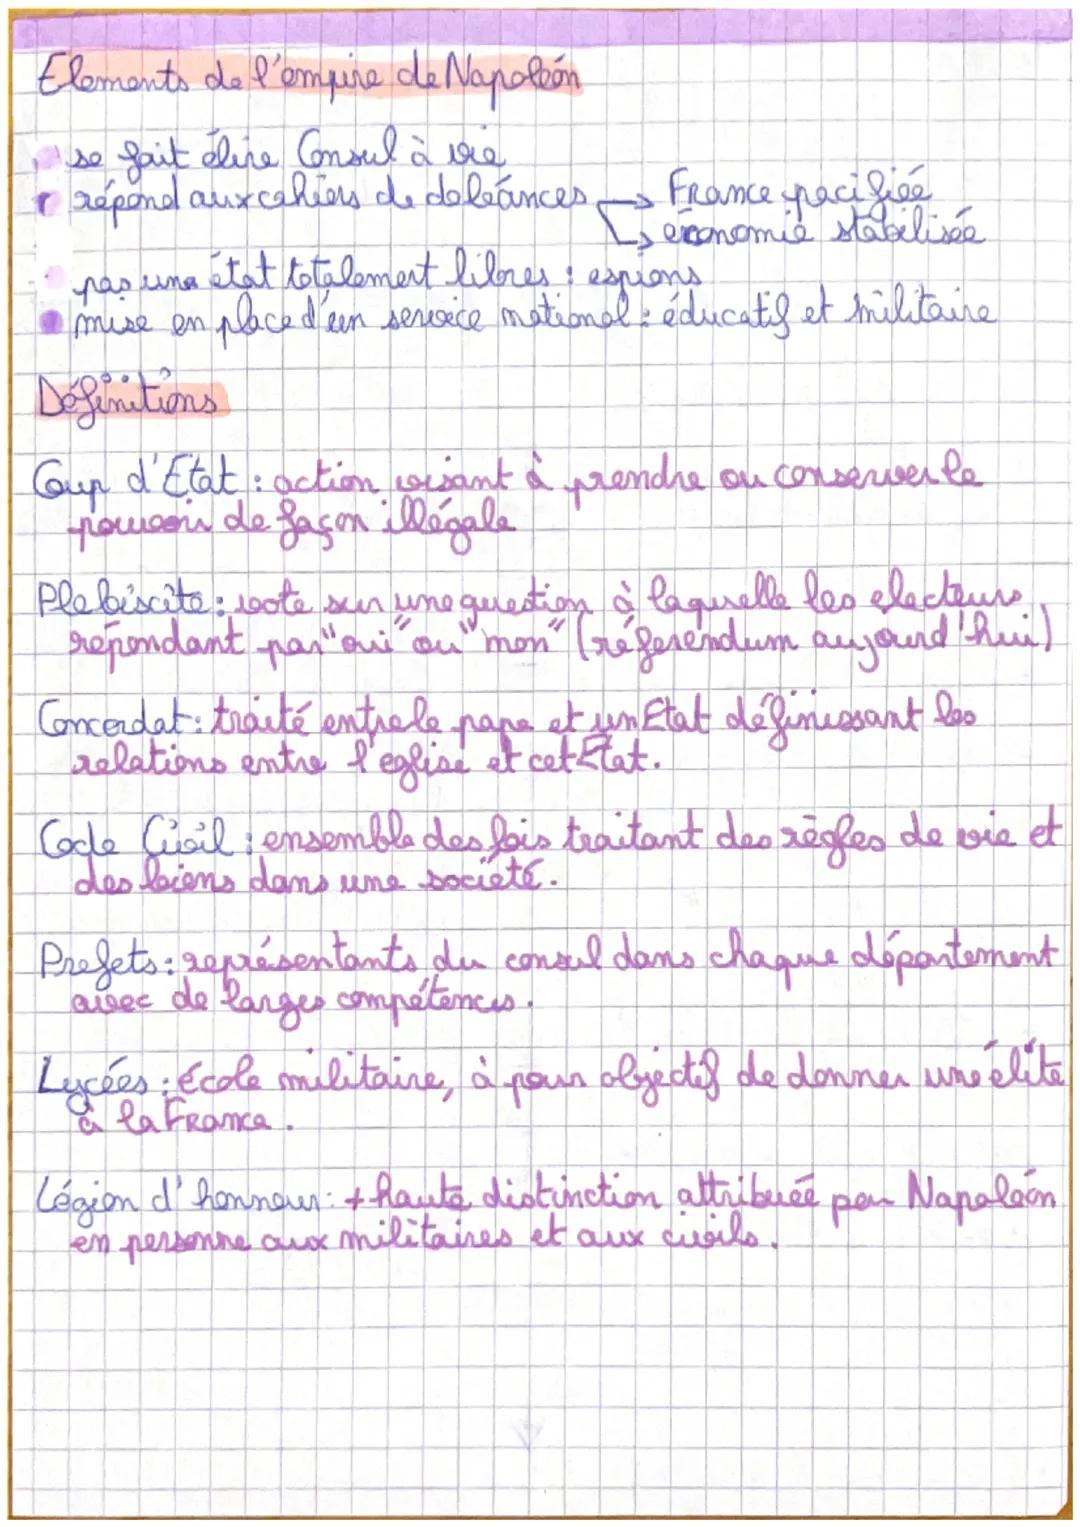 Elements de l'empire de Napoléon
se fait élire Consul à vie
répond aux cahiers de doléances → France pacifiée
↳ économie stabilisée
pas une état totalement libres : espions
mise en place d'un service national : éducatif et militaire
Définitions
Coup d'Etat : action visant à prendre ou conserver le
pouvoir de façon illégale
Plebiscite : vote sur une question à laquelle les electeurs
répondant par "oui" ou "non" (référendum aujourd'hui)
Concordat : traité entre le pape et un Etat définissant les
relations entre l'eglise et cet Etat.
Code Civil : ensemble des lois traitant des règles de vie et
des biens dans une société.
Prefets : représentants du consul dans chaque département
avec de larges compétences.
Lycées : école militaire, à pour objectif de donner une élite
à la France.
Légion d'honneur : + haute distinction attribuée par Napoléon
en personne aux militaires et aux civils.